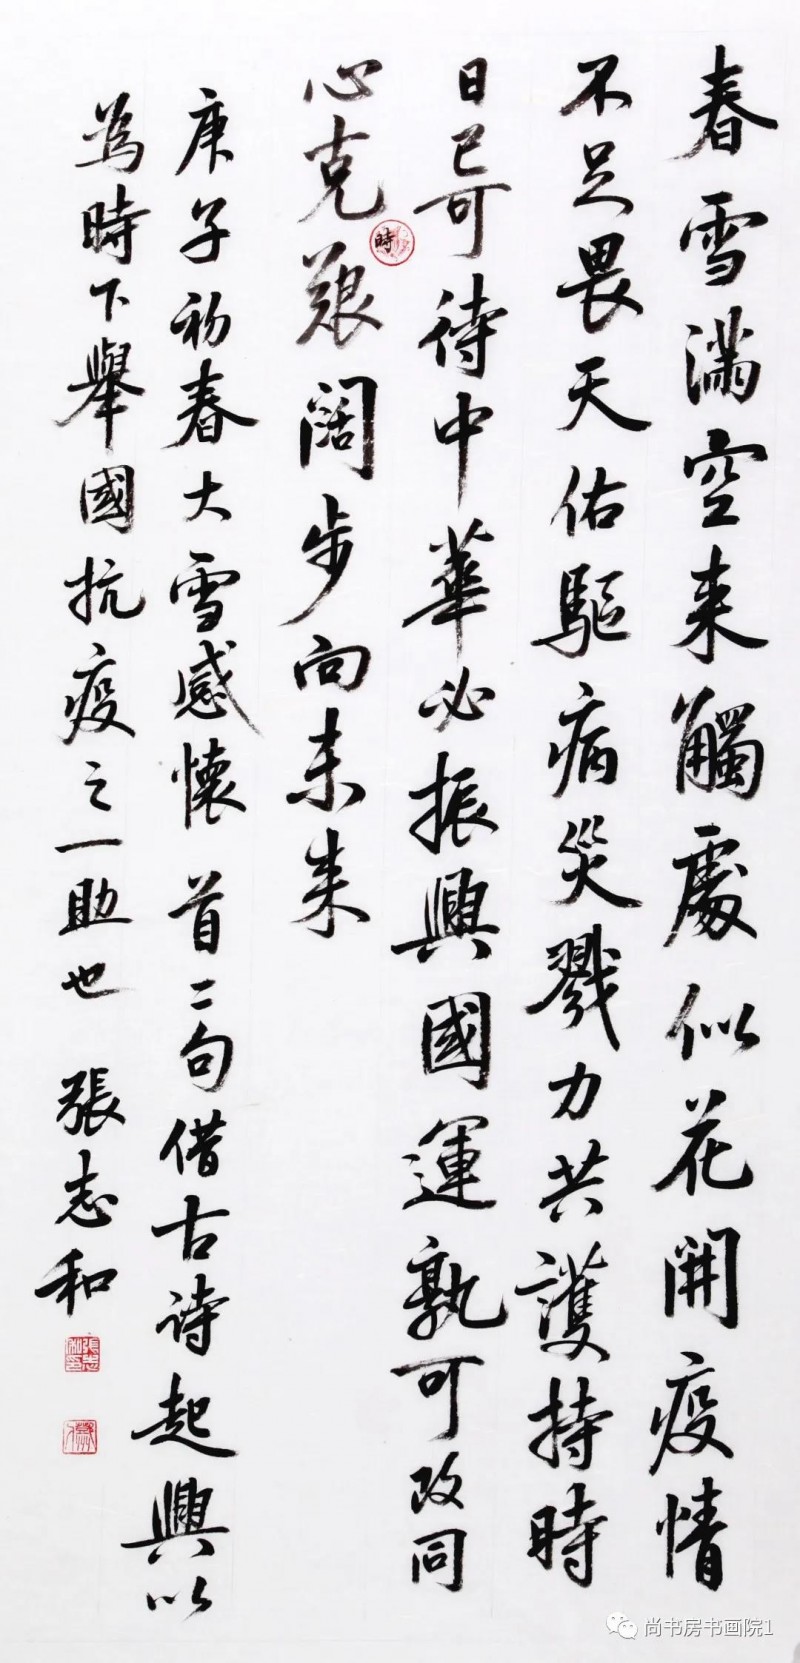 春雪滿空来觸處似花開疫情
不足畏天佑驅病災戮力共護持時
日已可待中華必振興國運孰可改同
心克艱闊步向未来
時
庚子初春大雪感懷首二句借古诗起興以
為時下舉國抗疫之一助也 張志和
尚书房书画院1